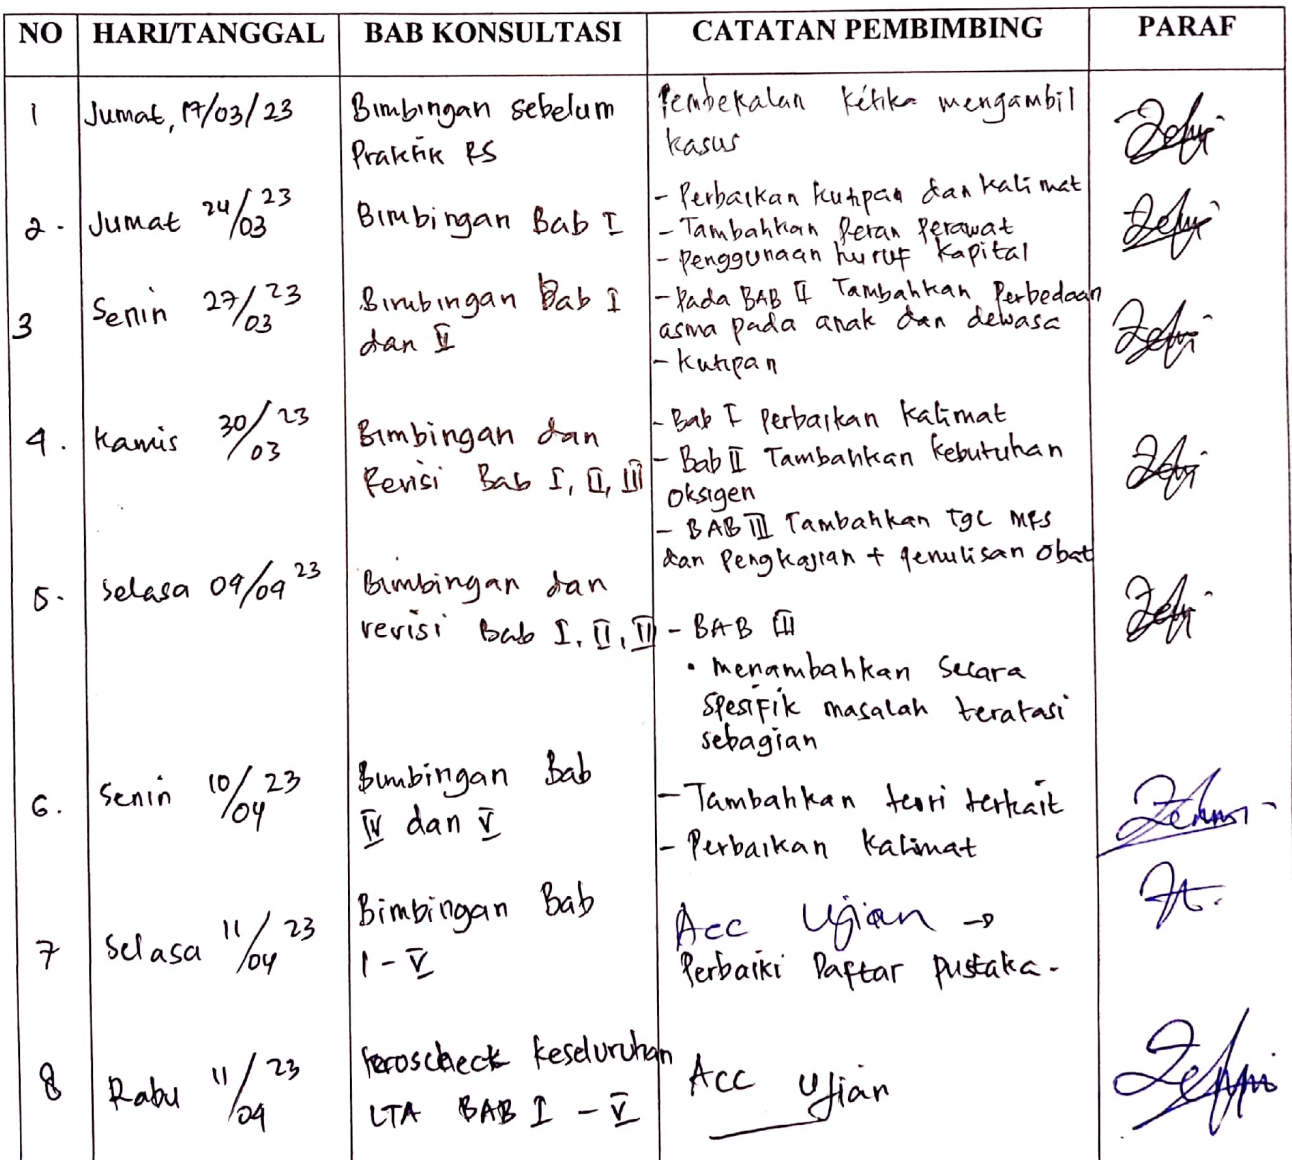 NO HARI/TANGGAL BAB KONSULTASI CATATAN PEMBIMBING PARAF
1 Jumat, 17/03/23 Bimbingan sebelum Praktik RS
Pembekalan ketika mengambil
kasus
2. Jumat 24/03 23 Bimbingan Bab I
- Perbaikan kutipan dan kalimat
- Tambahkan Peran Perawat
- Penggunaan huruf kapital
3 Senin 27/03 23 Bimbingan Bab I
dan II
- Pada BAB II Tambahkan Perbedaan
asma pada anak dan dewasa
- Kutipan
4. Kamis 30/03 23 Bimbingan dan
Revisi Bab I, II, III
- Bab I Perbaikan kalimat
- Bab II Tambahkan kebutuhan
Oksigen
- BAB III Tambahkan Tgl MRS
dan Pengkajian + penulisan obat
5. Selasa 04/04 23 Bimbingan dan
revisi Bab I, II, III
- BAB III
• menambahkan secara
spesifik masalah teratasi
sebagian
6. Senin 10/04 23 Bimbingan Bab
IV dan V
- Tambahkan teori terkait
- Perbaikan kalimat
7 Selasa 11/04 23 Bimbingan Bab
I - V
Acc Ujian →
Perbaiki Daftar pustaka.
8 Rabu 11/04 23 keseluruhan
LTA BAB I - V
Acc Ujian